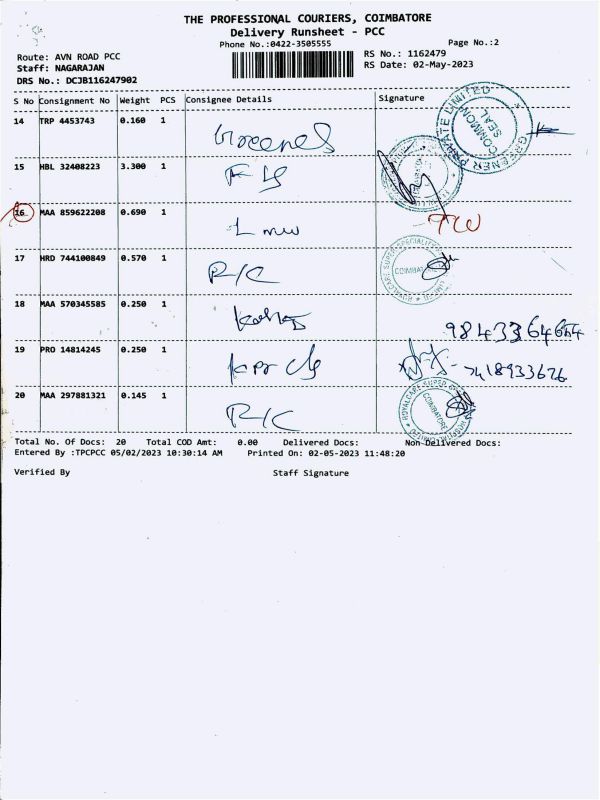 THE PROFESSIONAL COURIERS, COIMBATORE
Delivery Runsheet - PCC
Phone No.:0422-3505555
Page No.:2
Route: AVN ROAD PCC
RS No.: 1162479
Staff: NAGARAJAN
RS Date: 02-May-2023
DRS No.: DCJB116247902
S No Consignment No Weight PCS Consignee Details Signature
14 TRP 4453743 0.160 1
GREENER PRIVATE LIMITED
COMMON SEAL
15 HBL 32408223 3.300 1
16 MAA 859622208 0.690 1
17 HRD 744100849 0.570 1 R/C
18 MAA 570345585 0.250 1
9843364664
19 PRO 14814245 0.250 1
7418933626
20 MAA 297881321 0.145 1 R/C
ROYALCARE SUPER
COIMBATORE
Total No. Of Docs: 20 Total COD Amt: 0.00 Delivered Docs: Non-Delivered Docs:
Entered By :TPCPCC 05/02/2023 10:30:14 AM Printed On: 02-05-2023 11:48:20
Verified By Staff Signature